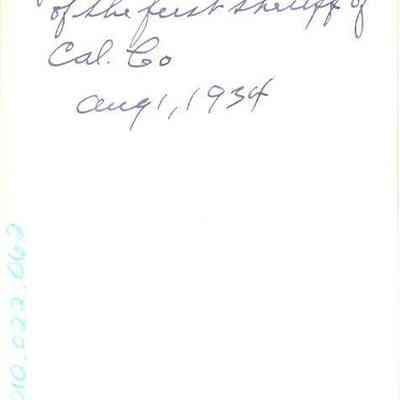 of the first sheriff of
Cal. Co
Aug 1, 1934
010.022.062